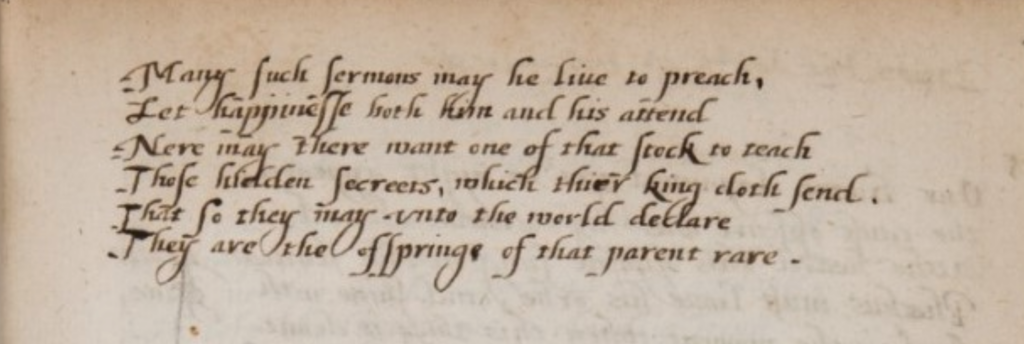 Many such sermons may he liue to preach,
Let happinesse both him and his attend
Nere may there want one of that stock to teach
Those hidden secreets, which thier king doth send.
That so they may vnto the world declare
They are the offpringe of that parent rare.